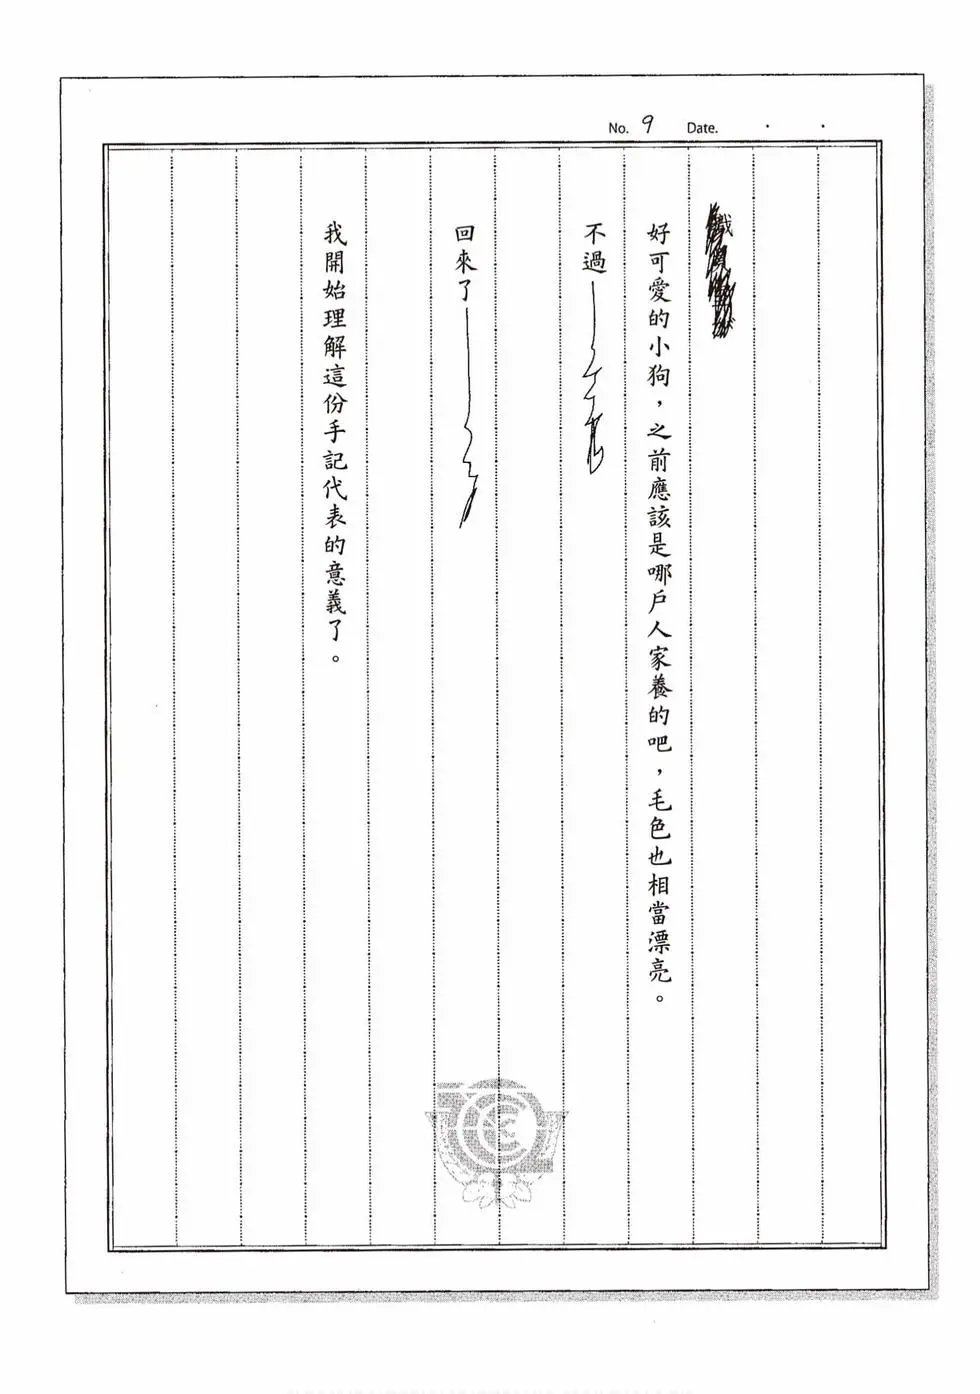 No. 9 Date. . .
好可愛的小狗，之前應該是哪戶人家養的吧，毛色也相當漂亮。
不過
回來了
我開始理解這份手記代表的意義了。